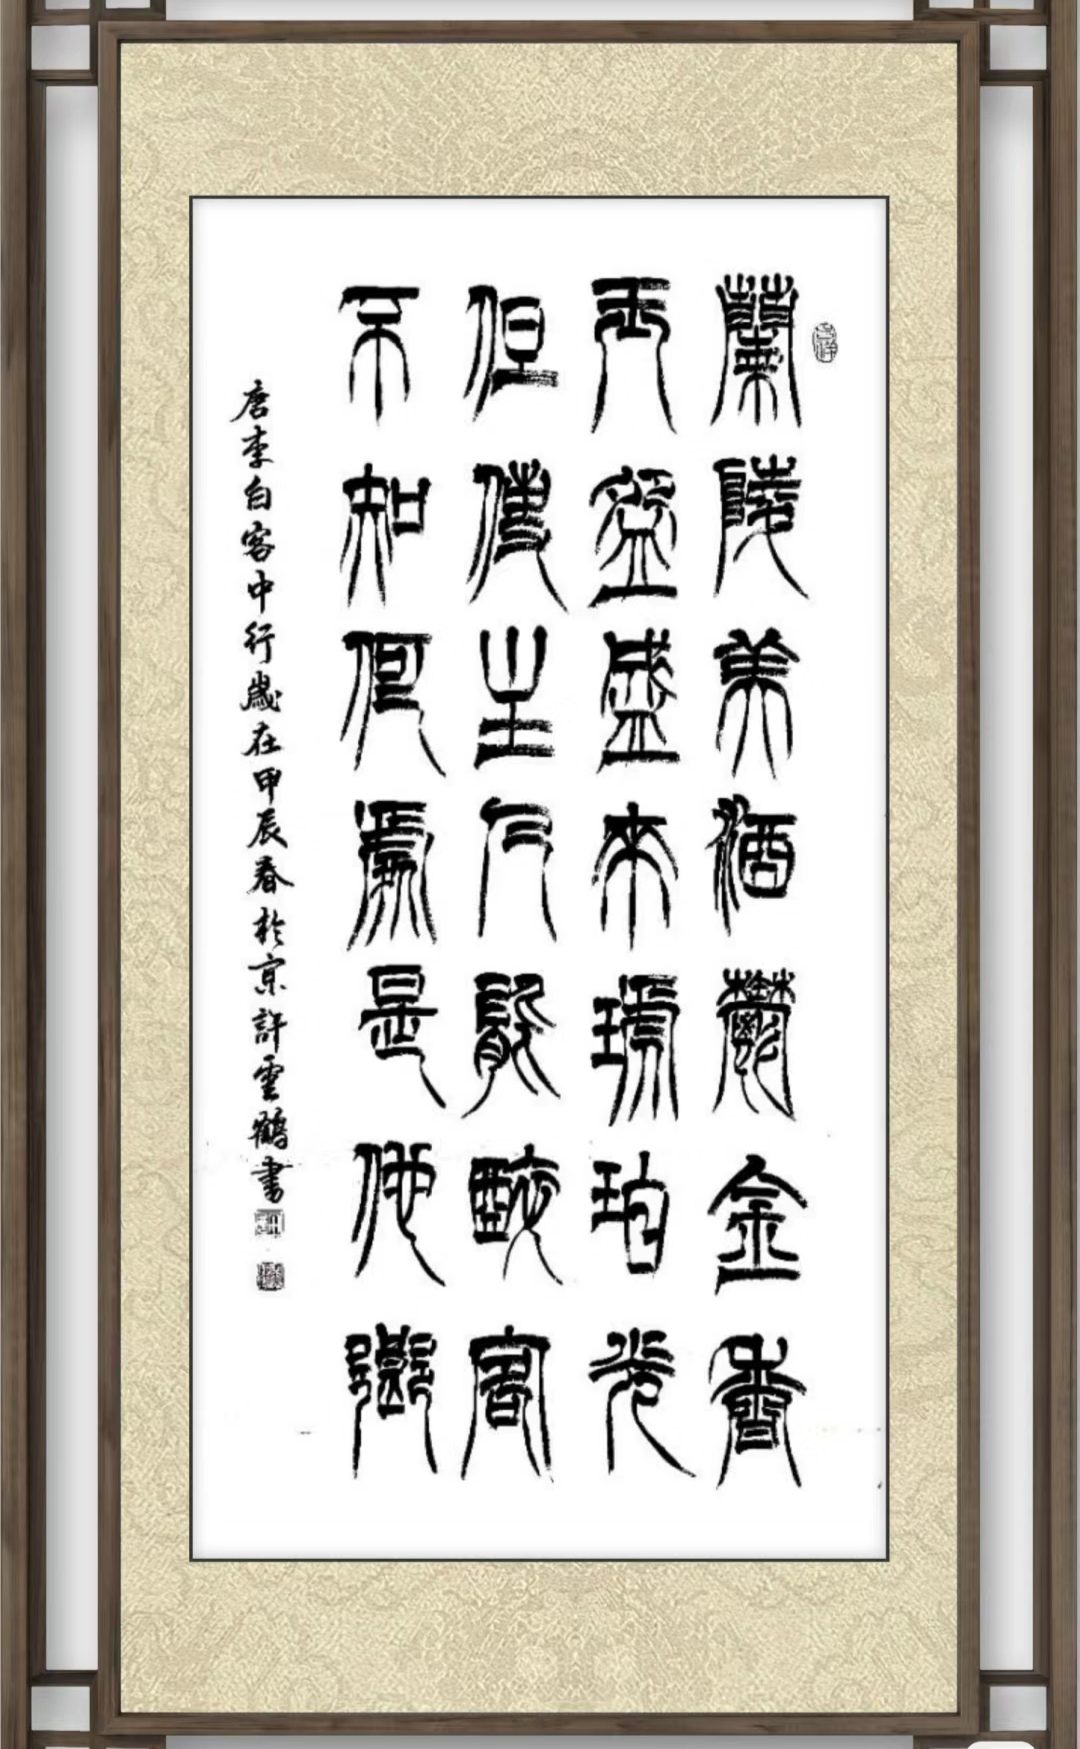 蘭陵美酒鬱金香
玉盌盛來琥珀光
但使主人能醉客
不知何處是他鄉
唐李白客中行歲在甲辰春於京許雲鶴書